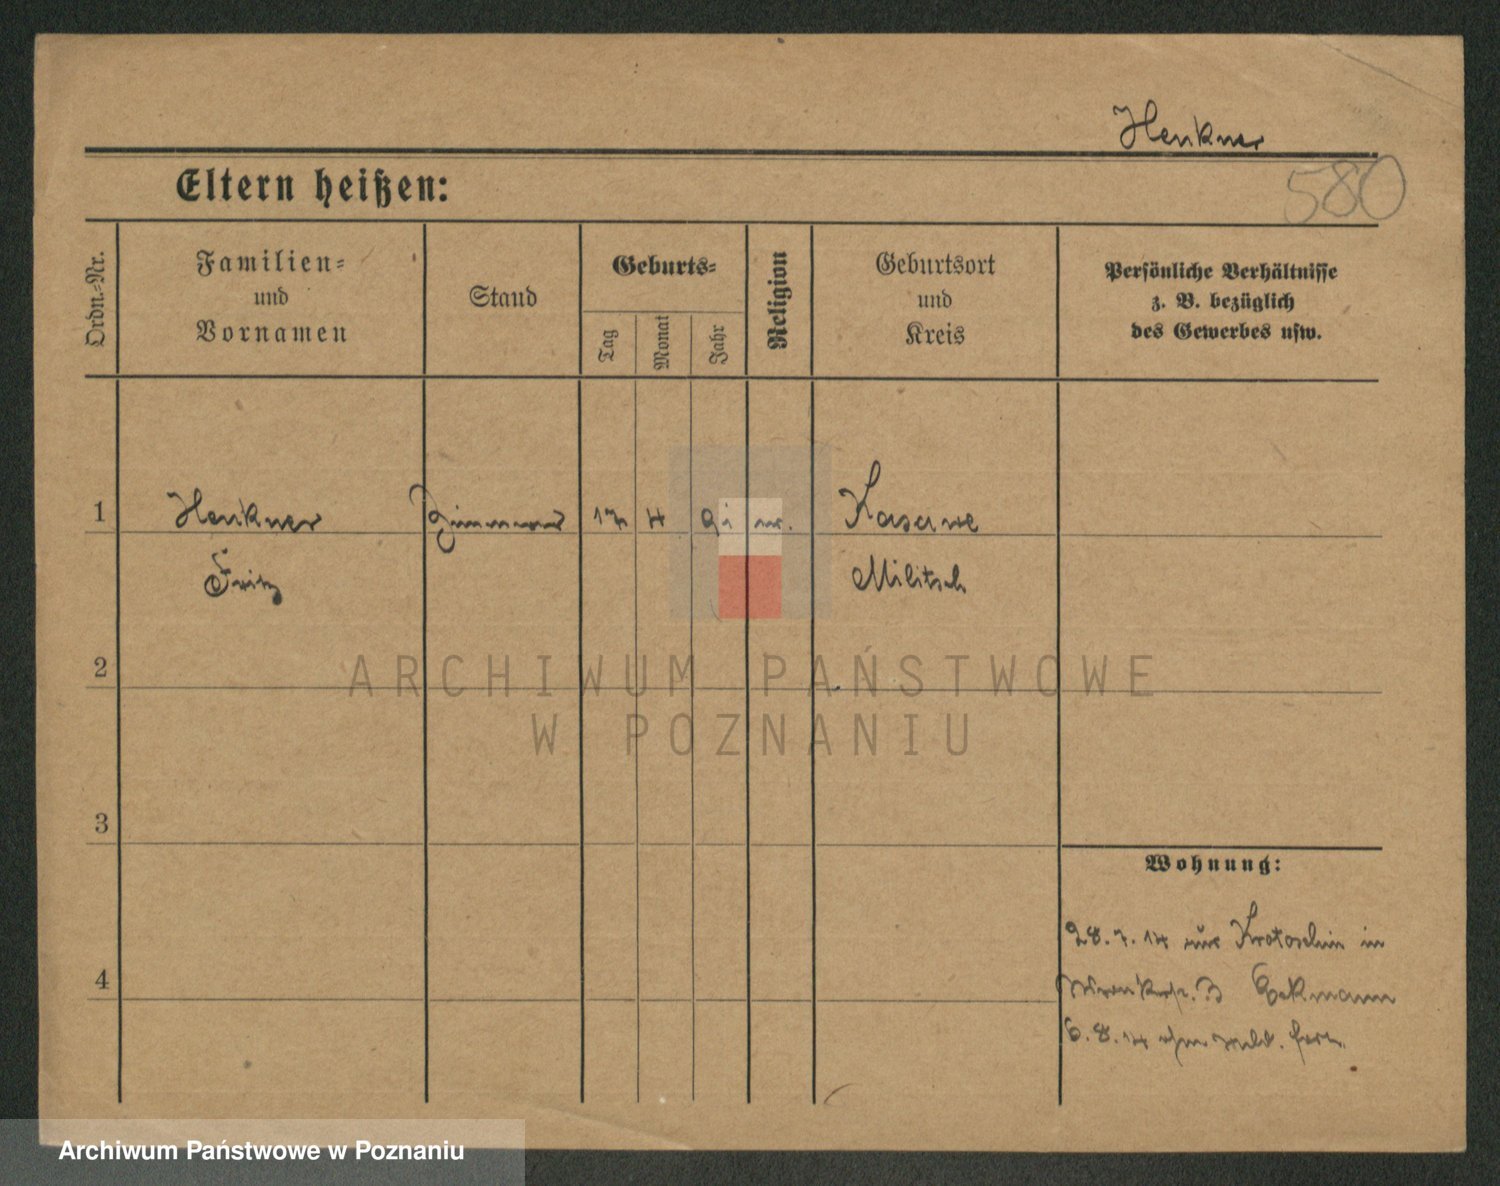 Henkner
580
Eltern heißen:
Ordn.-Nr.
Familien-
und
Vornamen
Stand
Geburts-
Tag
Monat
Jahr
Religion
Geburtsort
und
Kreis
Persönliche Verhältnisse
z. B. bezüglich
des Gewerbes usw.
1
Henkner
Zimmerer
17
4
91
Kasawe
Fritz
Militsch
2
3
4
Wohnung:
28.7.14 aus Krotoschin in
3 Eckmann
6.8.14
ARCHIWUM PAŃSTWOWE
W POZNANIU
Archiwum Państwowe w Poznaniu